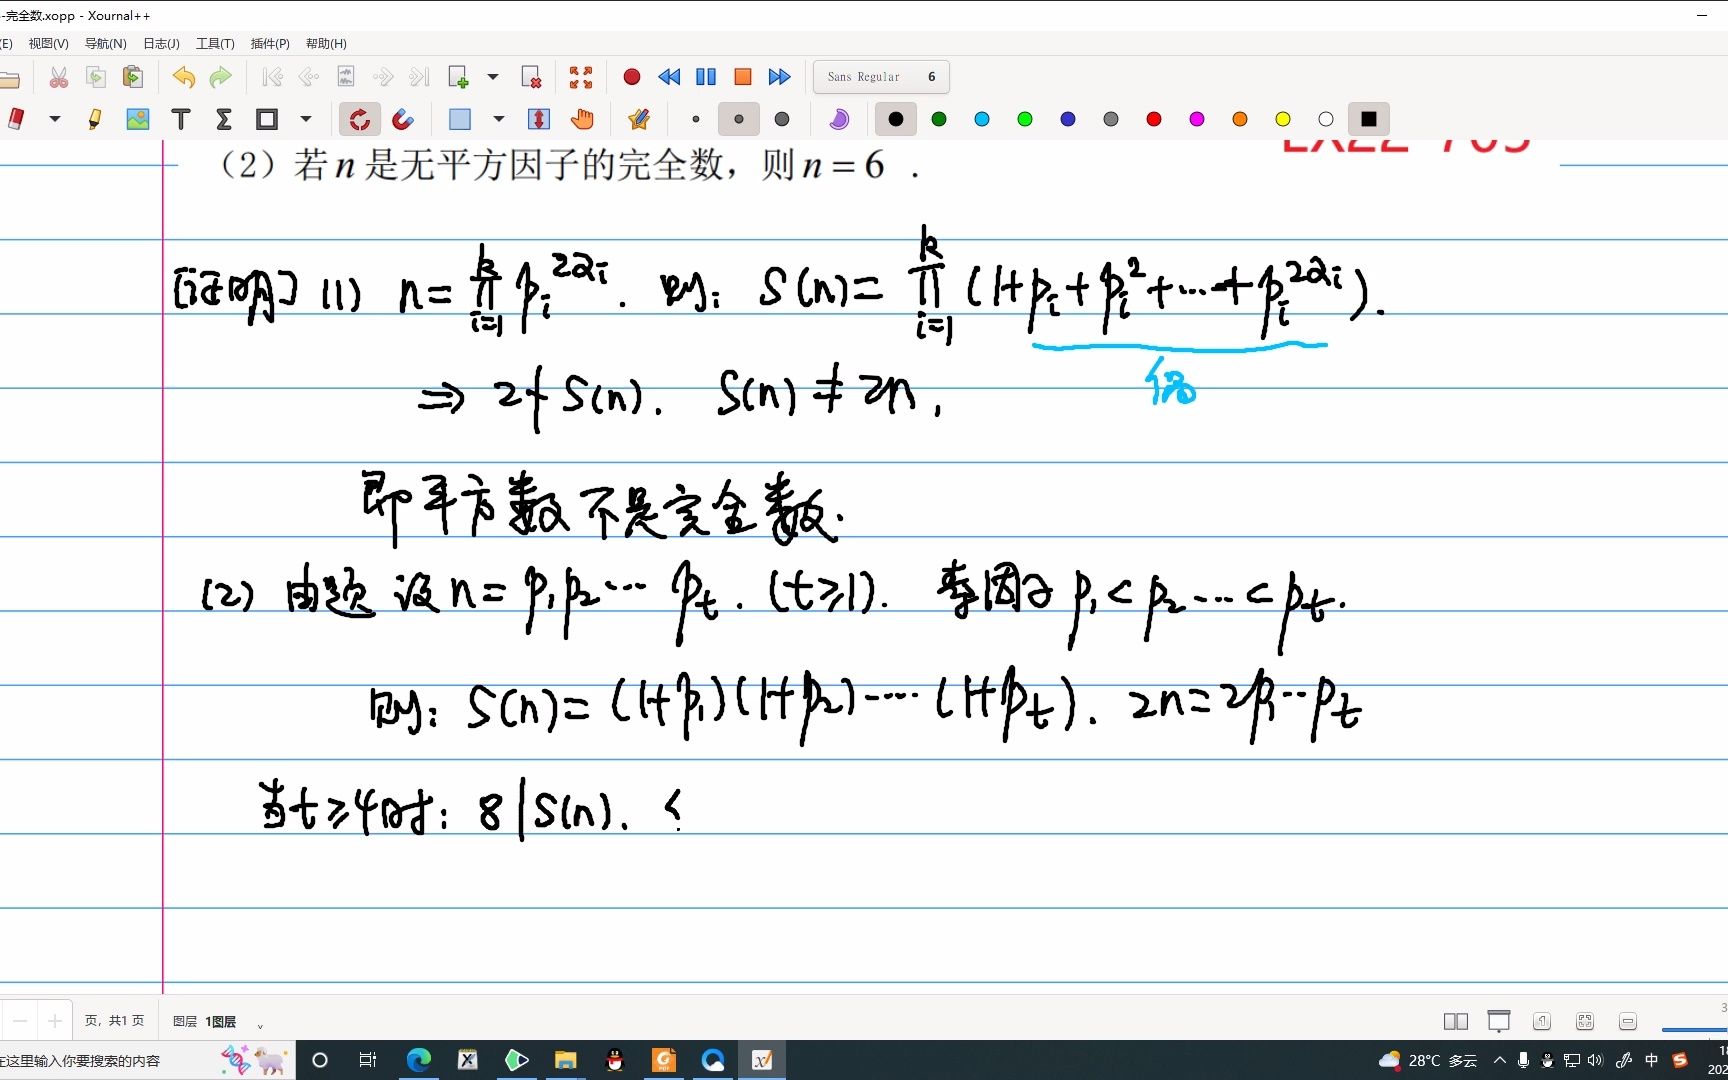 -完全数.xopp - Xournal++
(E) 视图(V) 导航(N) 日志(J) 工具(T) 插件(P) 帮助(H)
Sans Regular 6
（2）若 n 是无平方因子的完全数，则 n = 6 .
[证明] (1) n = ∏_{i=1}^{k} p_i^{2α_i} . 则: S(n) = ∏_{i=1}^{k} (1+p_i+p_i^2+…+p_i^{2α_i}).
偶
⇒ 2∤S(n). S(n) ≠ 2n,
即平方数不是完全数.
(2) 由题 设 n = p_1p_2… p_t . (t≥1). 素因子 p_1 < p_2 … < p_t.
则: S(n) = (1+p_1)(1+p_2)…(1+p_t). 2n = 2p_1…p_t
当t≥4时: 8 | S(n).
页，共1 页 图层 1图层
在这里输入你要搜索的内容
28°C 多云 中